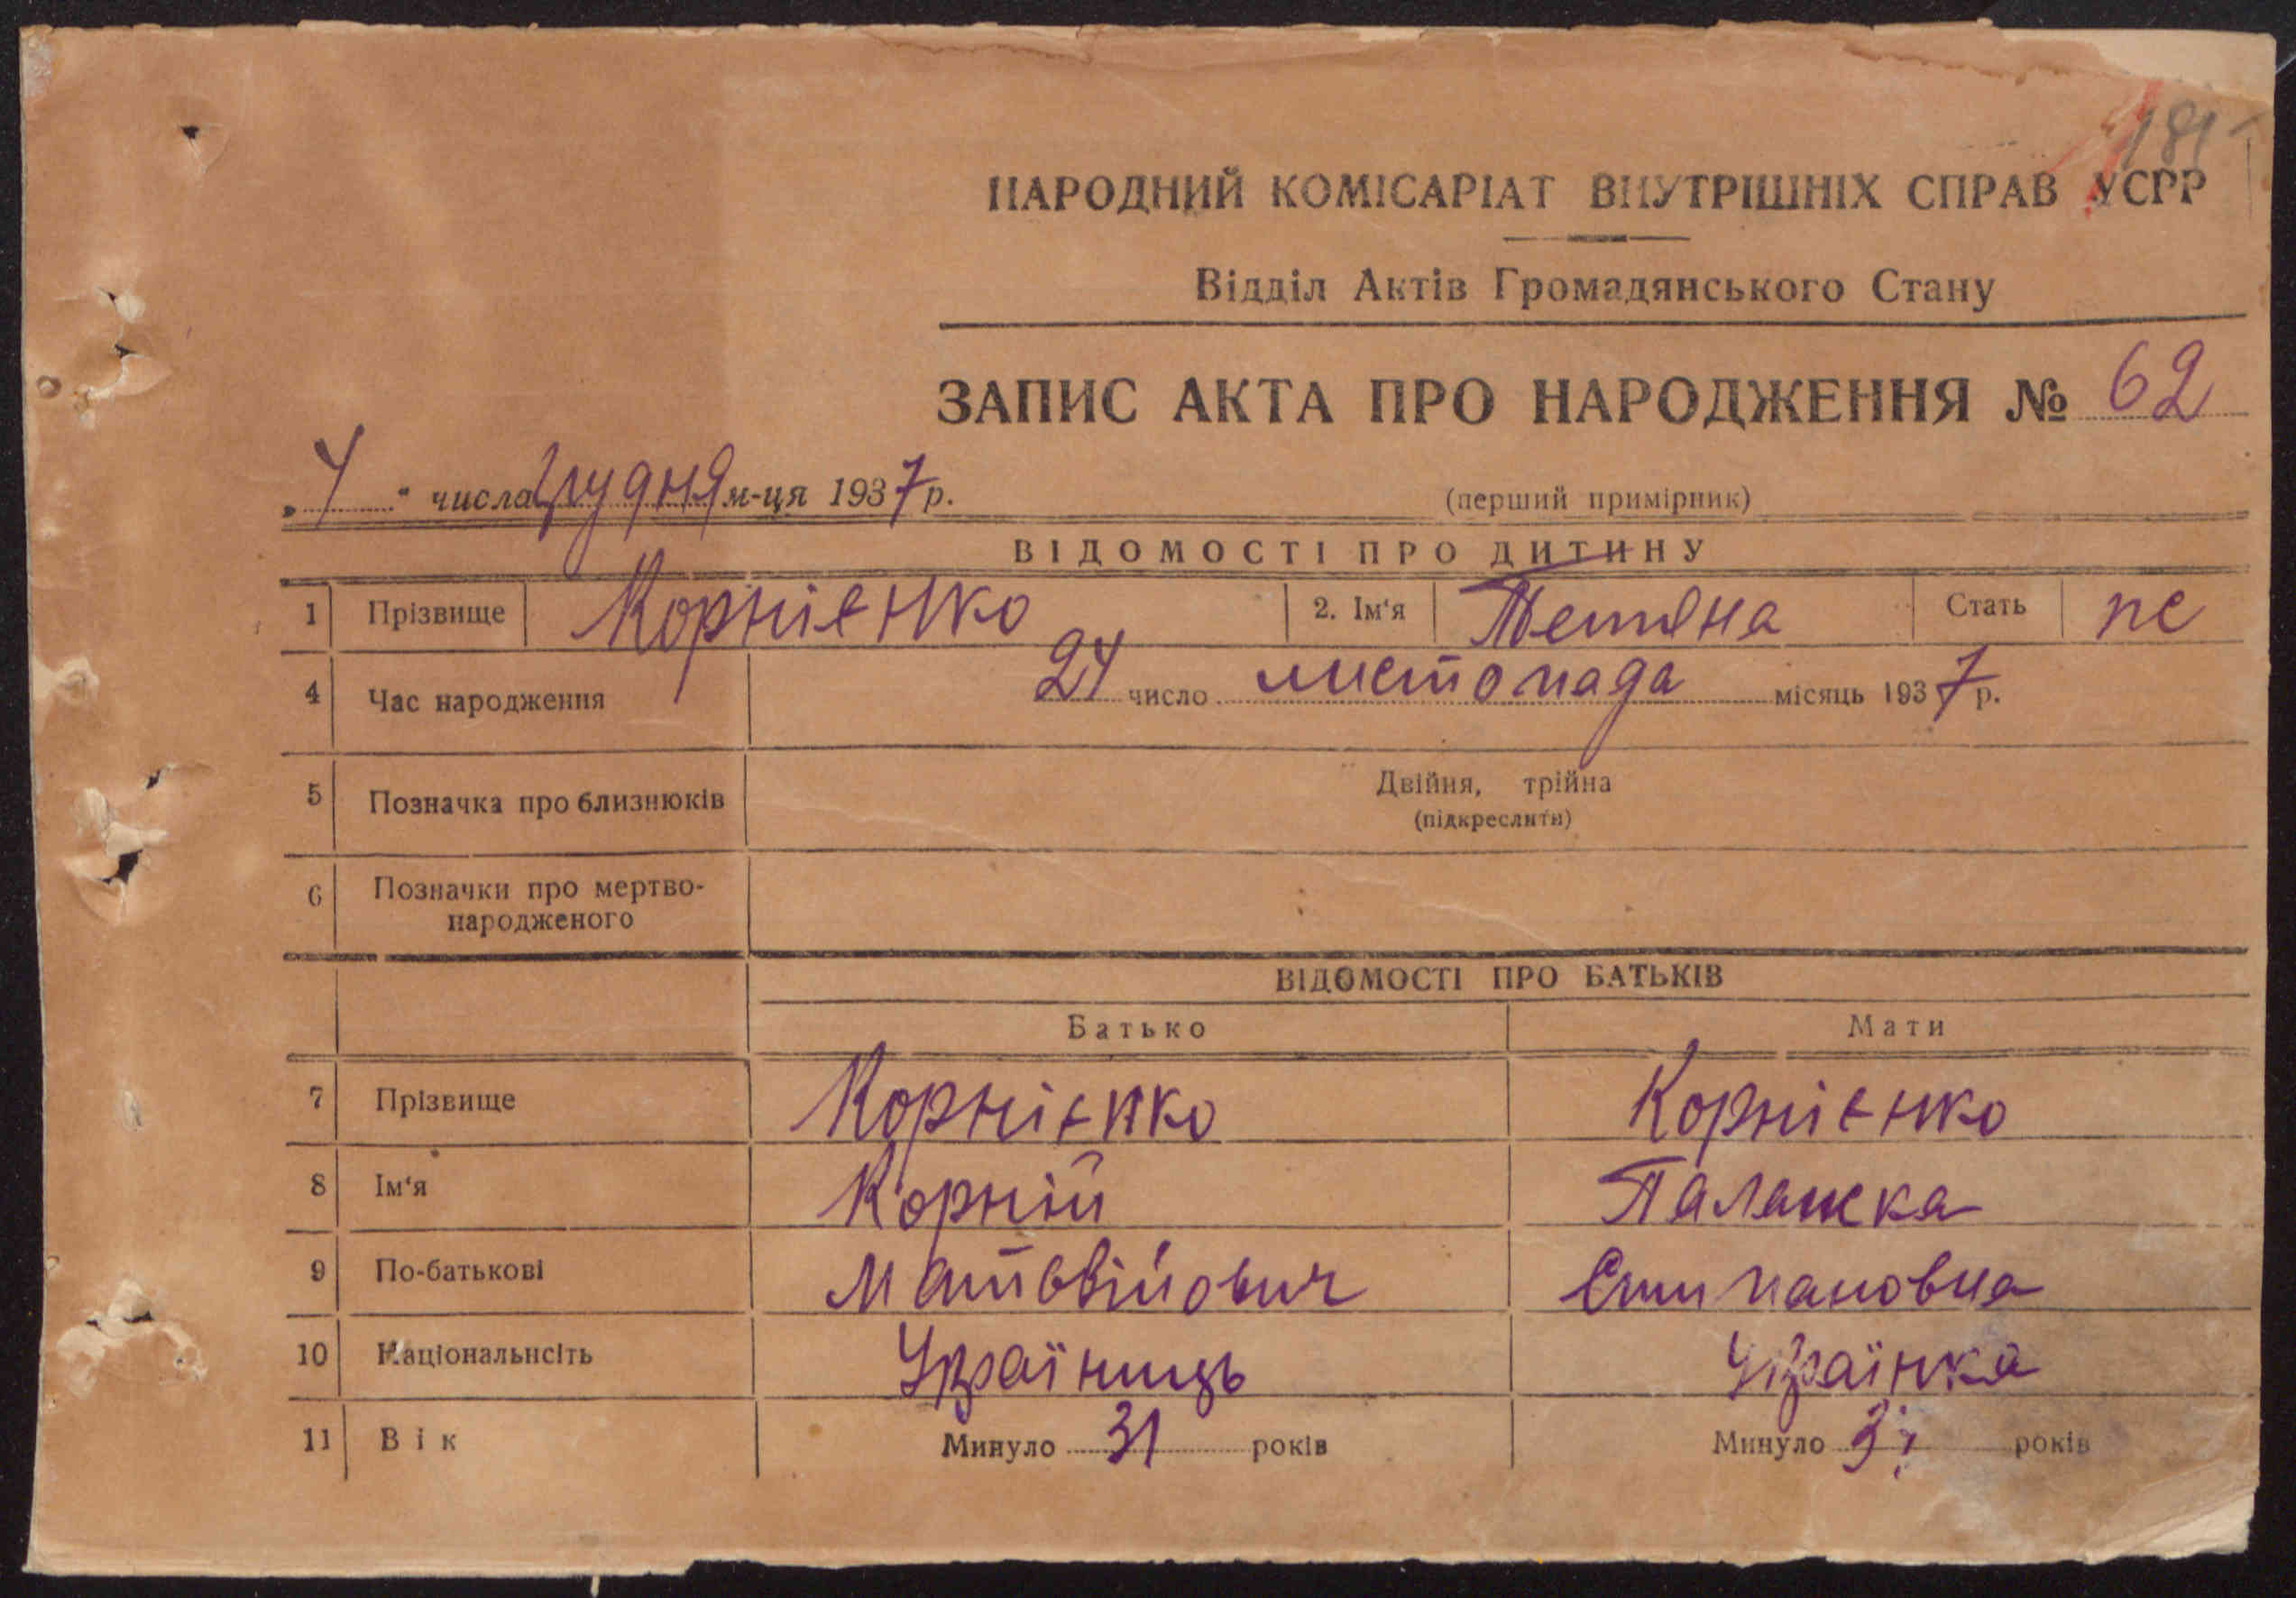 181
НАРОДНИЙ КОМІСАРІАТ ВНУТРІШНІХ СПРАВ УСРР
Відділ Актів Громадянського Стану
ЗАПИС АКТА ПРО НАРОДЖЕННЯ № 62
„ 4 " числа грудня м-ця 1937 р.
(перший примірник)
ВІДОМОСТІ ПРО ДИТИНУ
1 Прізвище Корнієнко 2. Ім'я Тетяна Стать
4 Час народження 24 число листопада місяць 1937 р.
5 Позначка про близнюків Двійня, трійна
(підкреслити)
6 Позначки про мертво-
народженого
ВІДОМОСТІ ПРО БАТЬКІВ
Батько Мати
7 Прізвище Корнієнко Корнієнко
8 Ім'я Корній Палажка
9 По-батькові Матьвійович Стипановна
10 Національнсіть Україниць Українка
11 Вік Минуло 31 років Минуло років